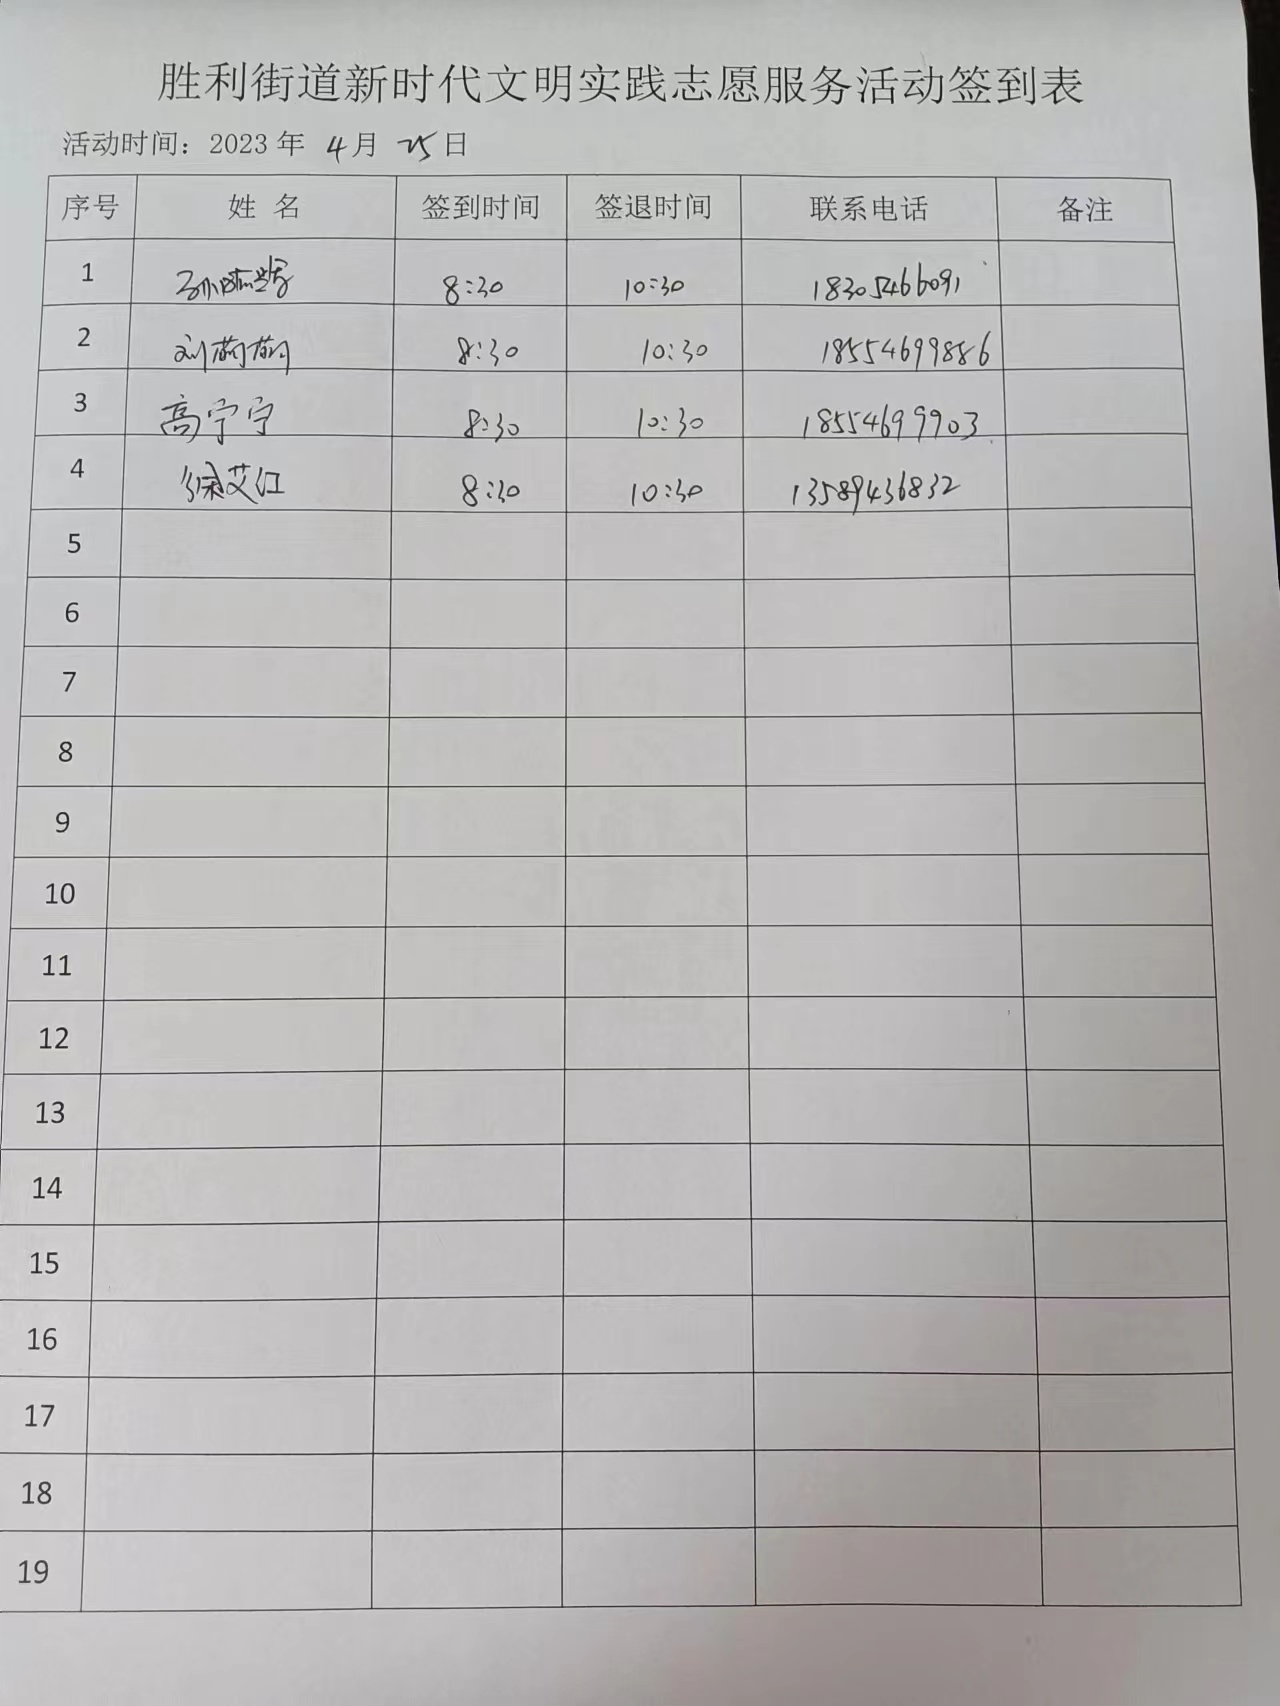 胜利街道新时代文明实践志愿服务活动签到表
活动时间：2023 年 4月 25日
序号 姓 名 签到时间 签退时间 联系电话 备注
1 8:30 10:30 18305466091
2 刘荷荷 8:30 10:30 18554699886
3 高宁宁 8:30 10:30 18554699903
4 徐艾江 8:30 10:30 13589436832
5
6
7
8
9
10
11
12
13
14
15
16
17
18
19